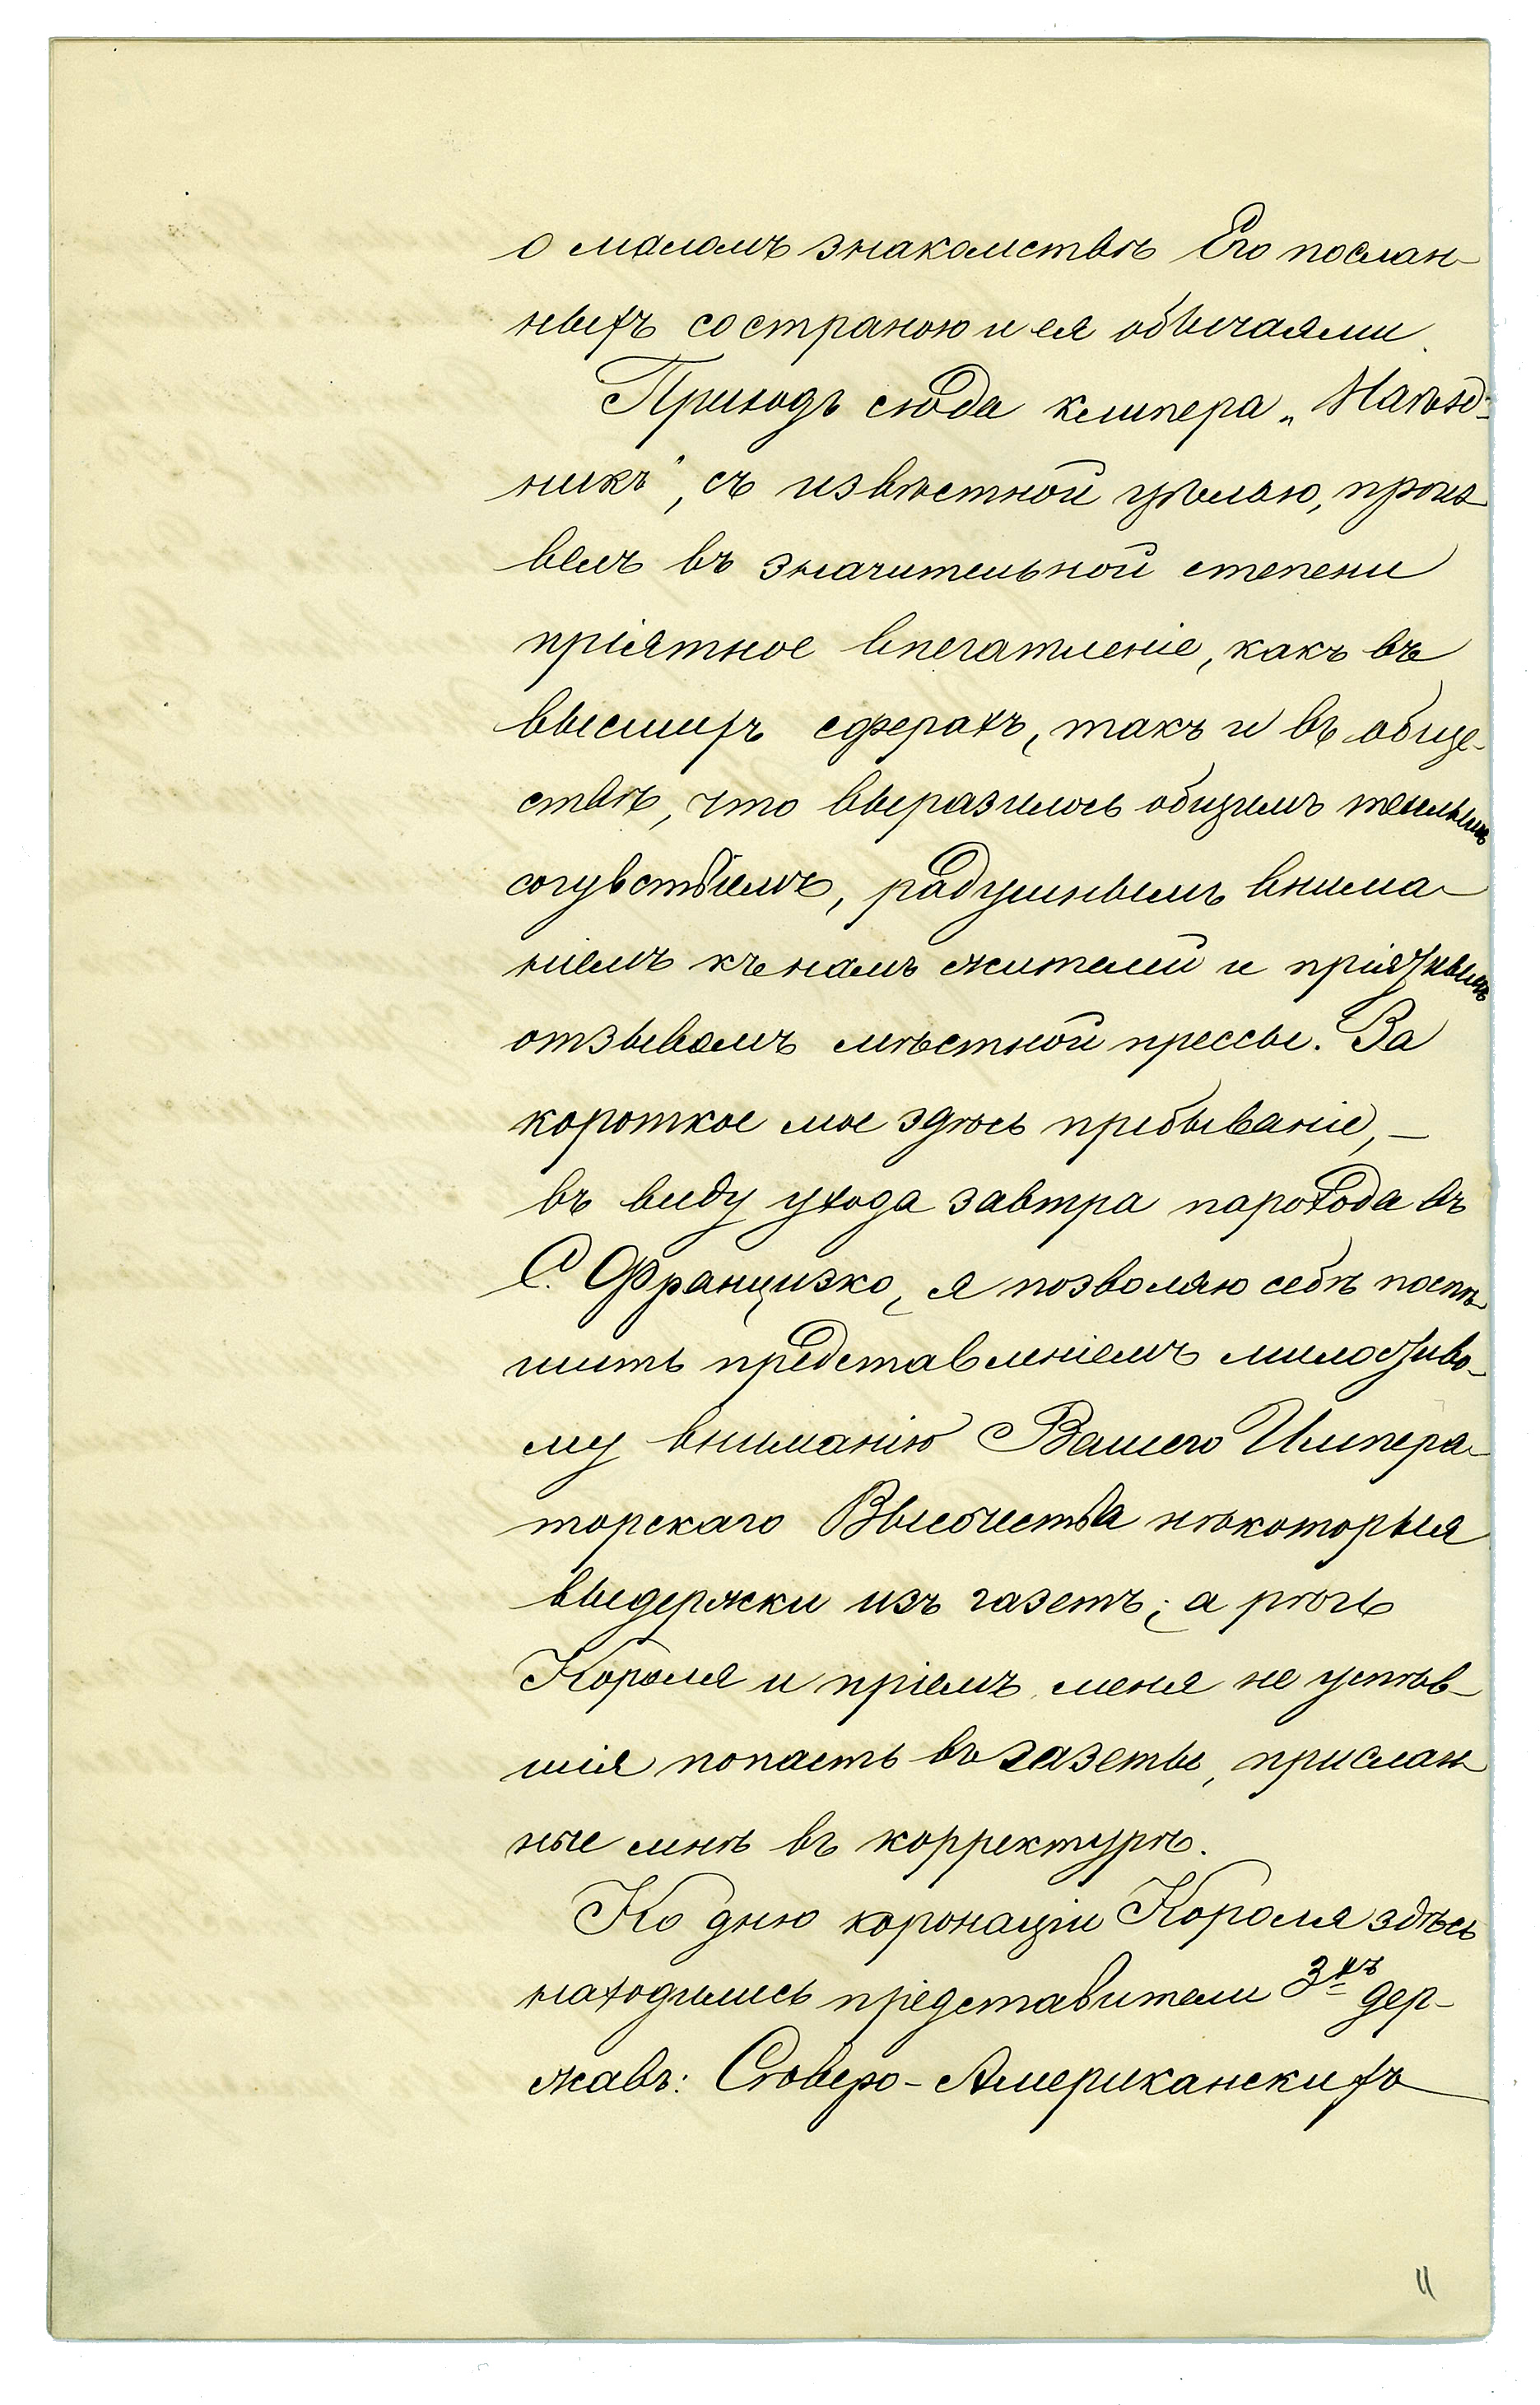 о маломъ знакомствѣ Его послан-
ныхъ со страною и ея обычаями.
Приходъ сюда клипера „Наѣзд-
никъ", съ извѣстной цѣлью, произ-
велъ въ значительной степени
пріятное впечатленіе, какъ въ
высшихъ сферахъ, такъ и въ обще-
ствѣ, что выразилось общимъ теплымъ
сочувствіемъ, радушнымъ внима-
ніемъ къ намъ жителей и пріятнымъ
отзывомъ мѣстной прессы. За
короткое мое здѣсь пребываніе, —
въ виду ухода завтра парохода въ
С. Францизко, я позволяю себѣ поспѣ-
шить представленіемъ милостиво-
му вниманію Вашего Импера-
торскаго Высочества нѣкоторыя
выдержки изъ газетъ; а рѣчь
Короля и пріемъ меня не успѣв-
шія попасть въ газеты, прислан-
ные мнѣ въ корректурѣ.
Ко дню коронаціи Короля здѣсь
находились представители 3хъ дер-
жавъ: Сѣверо-Американскихъ
11